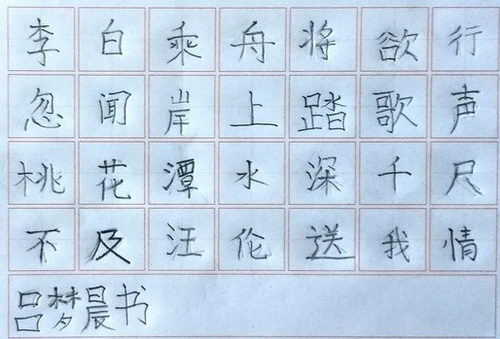 李白乘舟将欲行
忽闻岸上踏歌声
桃花潭水深千尺
不及汪伦送我情
吕梦晨书